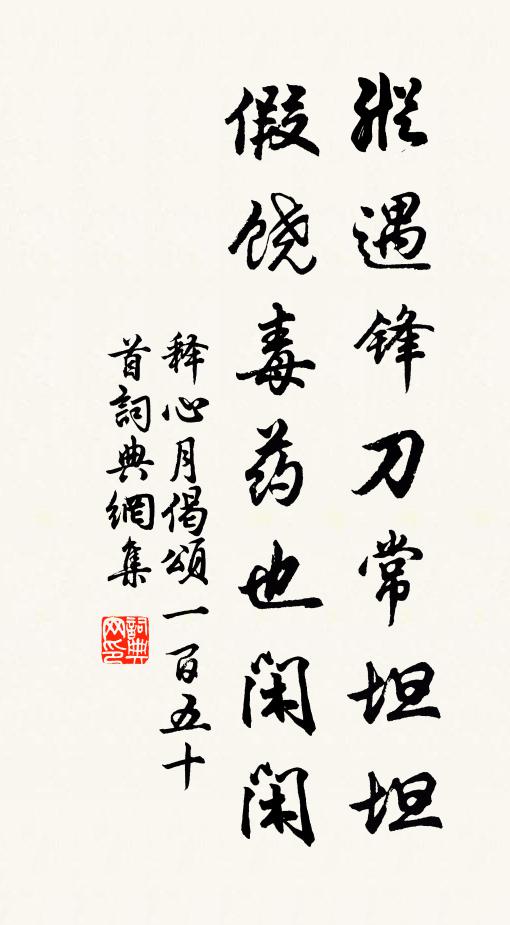 纵遇锋刀常坦坦
假饶毒药也闲闲
释心月偈頌一百五十
首詞典網集
詞典
网印